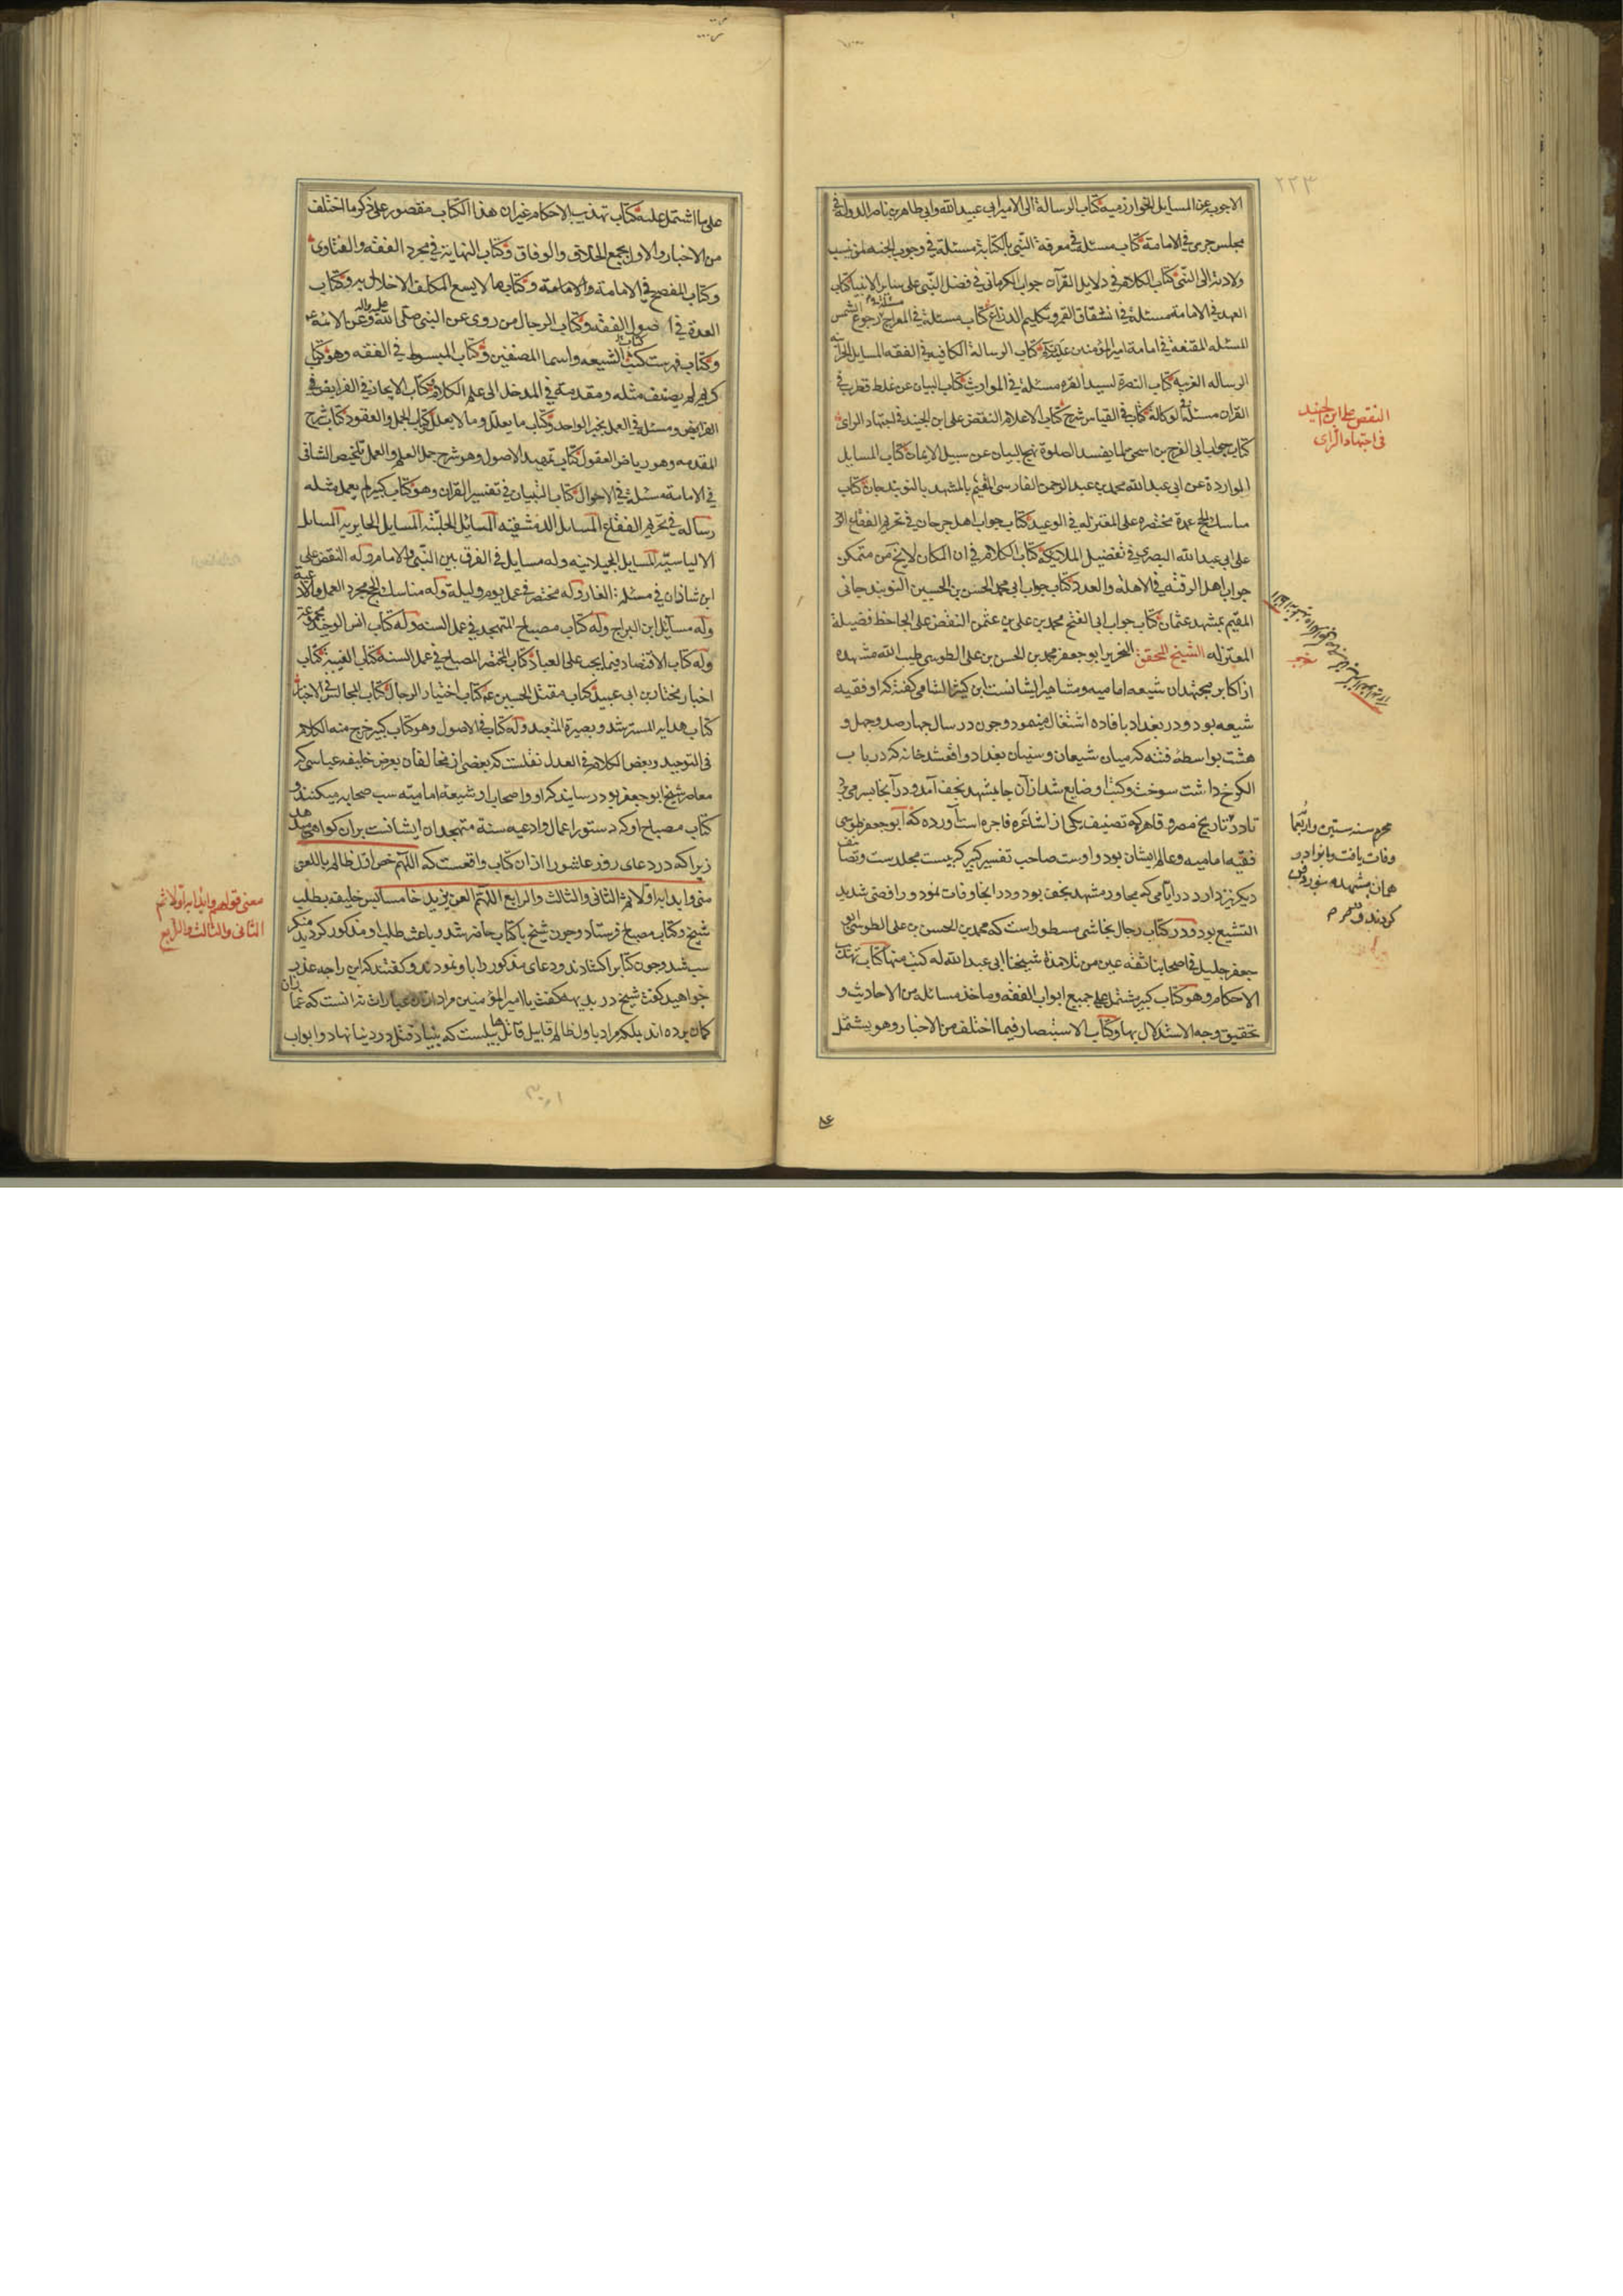 ٢٢٣
الاجوبه عن المسايل الخوارزميه كتاب الرسالة الى الامير ابى عبيد الله وابى طاهر بن ناصر الدولة فى
مجلس جرى فى الامامة كتاب مسئلة فى معرفة النبى بالكتابة مسئلة فى وجوب الجنه لمن نسب
ولادته الى النبى كتاب الكلام فى دلايل القرآن جواب الكرمانى فى فضل النبى على سابر الانبيا كتاب
العهد فى الامامة مسئلة فى انشقاق القمر وتكليم الذراع كتاب مسئلة فى المعراج رجوع الشمس
المسئله المقنعة فى امامة امير المؤمنين كتاب الرسالة الكافيه فى الفقه المسايل
الرساله الغريه كتاب النصرة لسيد القره مسئلة فى المواريث كتاب البيان عن غلط قطرب فى
القران مسئلة فى الوكالة كتاب فى القياس شرح كتاب الاعلام النقض على ابن الجنيد فى اجتهاد الراى
كتاب جواب ابى الفرج بن اسحى عما يفسد الصلوة نهج البيان عن سبيل الايمان كتاب المسايل
الواردة عن ابى عبد الله محمد بن عبد الرحمن الفارسى المقيم بالمشهد بالنوبندجان كتاب
مناسك الحج عمدة مختصره على المعتزله فى الوعيد كتاب جواب اهل جرجان فى تحريم الفقاع الرد
على ابى عبد الله البصرى فى تفضيل الملايكة كتاب الكلام فى ان المكان لايخ من متمكن
جواب اهل الرقه فى الاهله والعدد كتاب جواب ابى محمد الحسن بن الحسين النوبندجانى
المقيم بمشهد عثمان كتاب جواب ابى الفتح محمد بن على بن عثمن النقض على الجاحظ فضيلة
المعتزله الشيخ المحقق النحرير ابو جعفر محمد بن الحسن بن على الطوسى طيب الله مشهده
از اكابر مجتهدان شيعه اماميه ومشاهير ايشانست ابن كثير الشامى كفته كه او فقيه
شيعه بود ودر بغداد بافاده اشتغال مينمود وجون در سال جهار صد وجهل و
هشت بواسطه فتنه كه ميان شيعان وسنيان بغداد واقع شد خانه كه در باب
الكرخ داشت سوخت وكتب او ضايع شد از آن جا بمشهد نجف آمد ودر آنجا بسر مى برد
تا در تاريخ مصر وقاهره كه تصنيف يكى از اشاعره فاجره است آورده كه ابو جعفر طوسى
فقيه اماميه وعالم ايشان بود واوست صاحب تفسير كبير كه بيست مجلد ست وتصانيف
ديكر نيز دارد در ايامى كه مجاور مشهد نجف بود ودر انجا وفات نمود و رافضى شديد
التشيع بود ودر كتاب رجال نجاشى مسطور است كه محمد بن الحسن بن على الطوسى ابو
جعفر جليل فى اصحابنا ثقه عين من تلامذة شيخنا ابى عبد الله له كتب منها كتاب تهذيب
الاحكام وهو كتاب كبير يشتمل على جميع ابواب الفقه وماخذ مسائله من الاحاديث و
تحقيق وجه الاستدلال بها وكتاب الاستبصار فيما اختلف من الاخبار وهو يشتمل
النقض على ابن الجنيد
فى اجتهاد الراى
محرم سنه ستين واربعما
وفات يافت وبانوا در
همان مشهد مقدس دفن
كردند
على ما اشتمل عليه كتاب تهذيب الاحكام غير ان هذا الكتاب مقصور على ذكر ما اختلف
من الاخبار والاول يجمع الخلاف والوفاق وكتاب النهاية فى مجرد الفقه والفتاوى
وكتاب المفصح فى الامامة والامامة وكتاب ما لا يسع المكلف الاخلال به وكتاب
العدة فى اصول الفقه وكتاب الرجال من روى عن النبى صلى الله عليه واله وعن الائمه
وكتاب فهرست كتب الشيعه واسما المصنفين وكتاب المبسوط فى الفقه وهو كتاب
كبير لم يصنف مثله ومقدمة فى المدخل الى علم الكلام وكتاب الايجاز فى الفرايض فى
الفرايض ومسئلة فى العمل بخبر الواحد وكتاب ما يعلل وما لا يعلل كتاب الجمل والعقود كتاب شرح
المقدمه وهو رياض العقول كتاب تمهيد الاصول وهو شرح جمل العلم والعمل تلخيص الشافى
فى الامامة مسئلة فى الاحوال كتاب التبيان فى تفسير القران وهو كتاب كبير لم يعمل مثله
رساله فى تحريم الفقاع المسايل الدمشقيه المسايل الحلبيه المسايل الحايريه المسايل
الالياسيه المسايل الجيلانيه وله مسايل فى الفرق بين النبى والامام وله النقض على
ابن شاذان فى مسئلة الغار وله مختصر فى عمل يوم وليلة وله مناسك الحج مجرد العمل والادعية
وله مسايل ابن البراج وله كتاب مصباح المتهجد فى عمل السنه وله كتاب انس الوحيد مجموعة
وله كتاب الاقتصاد فيما يجب على العباد كتاب المختصر المصباح فى عمل السنه كتاب الغيبة كتاب
اخبار مختار بن ابى عبيد كتاب مقتل الحسين كتاب اختيار الرجال كتاب المجالس فى الاخبار
كتاب هدايه المسترشد وبصيرة المتعبد وله كتاب فى الاصول وهو كتاب كبير خرج منه الكلام
فى التوحيد وبعض الكلام فى العدل نقلست كه بعضى از مخالفان بعرض خليفه عباسى كه
معاصر شيخ ابو جعفر بود رسانيد كه او واصحاب او شيعه اماميه سب صحابه ميكنند و
كتاب مصباح او كه دستور اعمال وادعيه سنة متهجدان ايشانست بر آن كواهى ميدهد
زيرا كه در دعاى روز عاشورا از ان كتاب واقعست كه اللهم خص اول ظالم باللعن
منى وابدا به اولا ثم الثانى والثالث والرابع اللهم العن يزيد خامسا پس خليفه بطلب
شيخ وكتاب مصباح فرستاد وجون شيخ با كتاب حاضر شد وباعث طلب او مذكور كرديد منكر
سب شد وجون كتاب را كشادند ودعاى مذكور را باو نمودند وكفتند كه اين را جه عذر
خواهيد كفت شيخ در بديهه كفت يا امير المؤمنين مراد از ان عبارات نه آنست كه غمازان
كمان برده اند بلكه مراد باول ظالم قابيل قاتل هابيلست كه بنياد قتل در دنيا نهاد وابواب
معنى قولهم وابدا به اولا ثم
الثانى والثالث والرابع